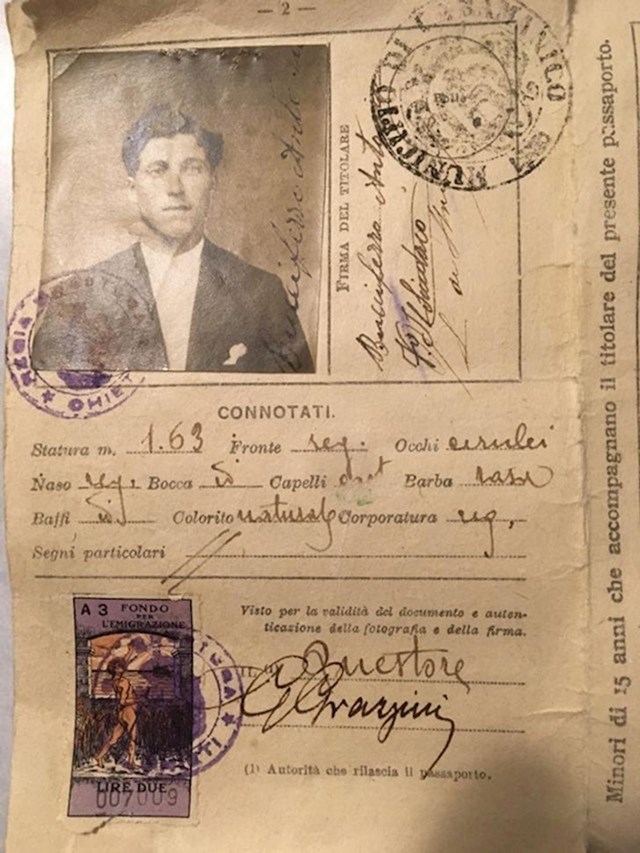 — 2 —
FIRMA DEL TITOLARE
MUNICIPIO DI
CHIETI
CONNOTATI.
Statura m. 1.63 Fronte reg. Occhi cerulei
Naso reg. Bocca id Capelli cast Barba rasa
Baffi id Colorito naturale Corporatura reg,
Segni particolari
A 3 FONDO
PER
L'EMIGRAZIONE
LIRE DUE
007009
Visto per la validità del documento e auten-
ticazione della fotografia e della firma.
IL Questore
(1) Autorità che rilascia il passaporto.
Minori di 15 anni che accompagnano il titolare del presente passaporto.